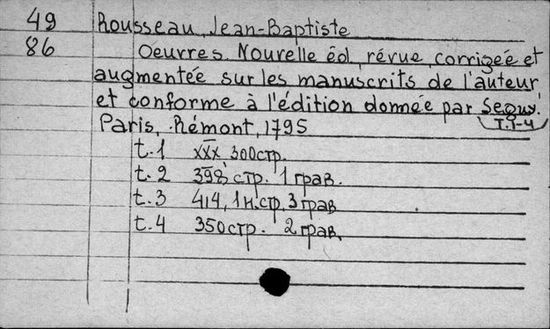 49 Rousseau, Jean-Baptiste
86 Oeuvres. Nouvelle éd., révue, corrigeé et
augmentée sur les manuscrits de l'auteur
et conforme à l'édition donnée par Seguy.
T.1-4
Paris, Rémont, 1795
t.1 XXX, 300стр.
t.2 398 стр. 1 грав.
t.3 414, 1н.стр, 3 грав
t.4 350стр. 2 грав.